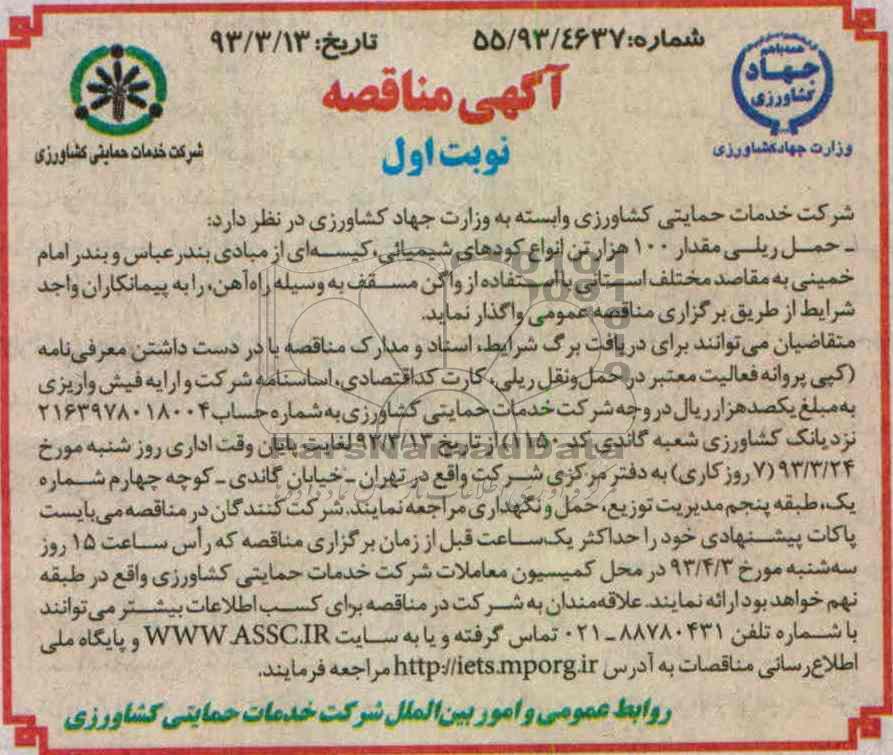 شماره: ۵۵/۹۳/٤۶۳۷
تاریخ: ۹۳/۳/۱۳
همه با هم
جهاد
کشاورزی
وزارت جهاد کشاورزی
شرکت خدمات حمایتی کشاورزی
آگهی مناقصه
نوبت اول
شرکت خدمات حمایتی کشاورزی وابسته به وزارت جهاد کشاورزی در نظر دارد:
ـ حمل ریلی مقدار ۱۰۰ هزار تن انواع کودهای شیمیائی، کیسه‌ای از مبادی بندرعباس و بندر امام
خمینی به مقاصد مختلف استانی با استفاده از واگن مسقف به وسیله راه‌آهن، را به پیمانکاران واجد
شرایط از طریق برگزاری مناقصه عمومی واگذار نماید.
متقاضیان می‌توانند برای دریافت برگ شرایط، اسناد و مدارک مناقصه با در دست داشتن معرفی‌نامه
(کپی پروانه فعالیت معتبر در حمل‌ونقل ریلی، کارت کداقتصادی، اساسنامه شرکت و ارایه فیش واریزی
به مبلغ یکصدهزار ریال در وجه شرکت خدمات حمایتی کشاورزی به شماره حساب ۲۱۶۳۹۷۸۰۱۸۰۰۴
نزد بانک کشاورزی شعبه گاندی کد ۱۱۵۰) از تاریخ ۹۳/۳/۱۳ لغایت پایان وقت اداری روز شنبه مورخ
۹۳/۳/۲۴ (۷ روز کاری) به دفتر مرکزی شرکت واقع در تهران ـ خیابان گاندی ـ کوچه چهارم شماره
یک، طبقه پنجم مدیریت توزیع، حمل و نگهداری مراجعه نمایند. شرکت کنندگان در مناقصه می‌بایست
پاکات پیشنهادی خود را حداکثر یک‌ساعت قبل از زمان برگزاری مناقصه که رأس ساعت ۱۵ روز
سه‌شنبه مورخ ۹۳/۴/۳ در محل کمیسیون معاملات شرکت خدمات حمایتی کشاورزی واقع در طبقه
نهم خواهد بود ارائه نمایند. علاقه‌مندان به شرکت در مناقصه برای کسب اطلاعات بیشتر می‌توانند
با شماره تلفن ۸۸۷۸۰۴۳۱ ـ ۰۲۱ تماس گرفته و یا به سایت WWW.ASSC.IR و پایگاه ملی
اطلاع‌رسانی مناقصات به آدرس http://iets.mporg.ir مراجعه فرمایند.
روابط عمومی و امور بین‌الملل شرکت خدمات حمایتی کشاورزی
ParsNamadData